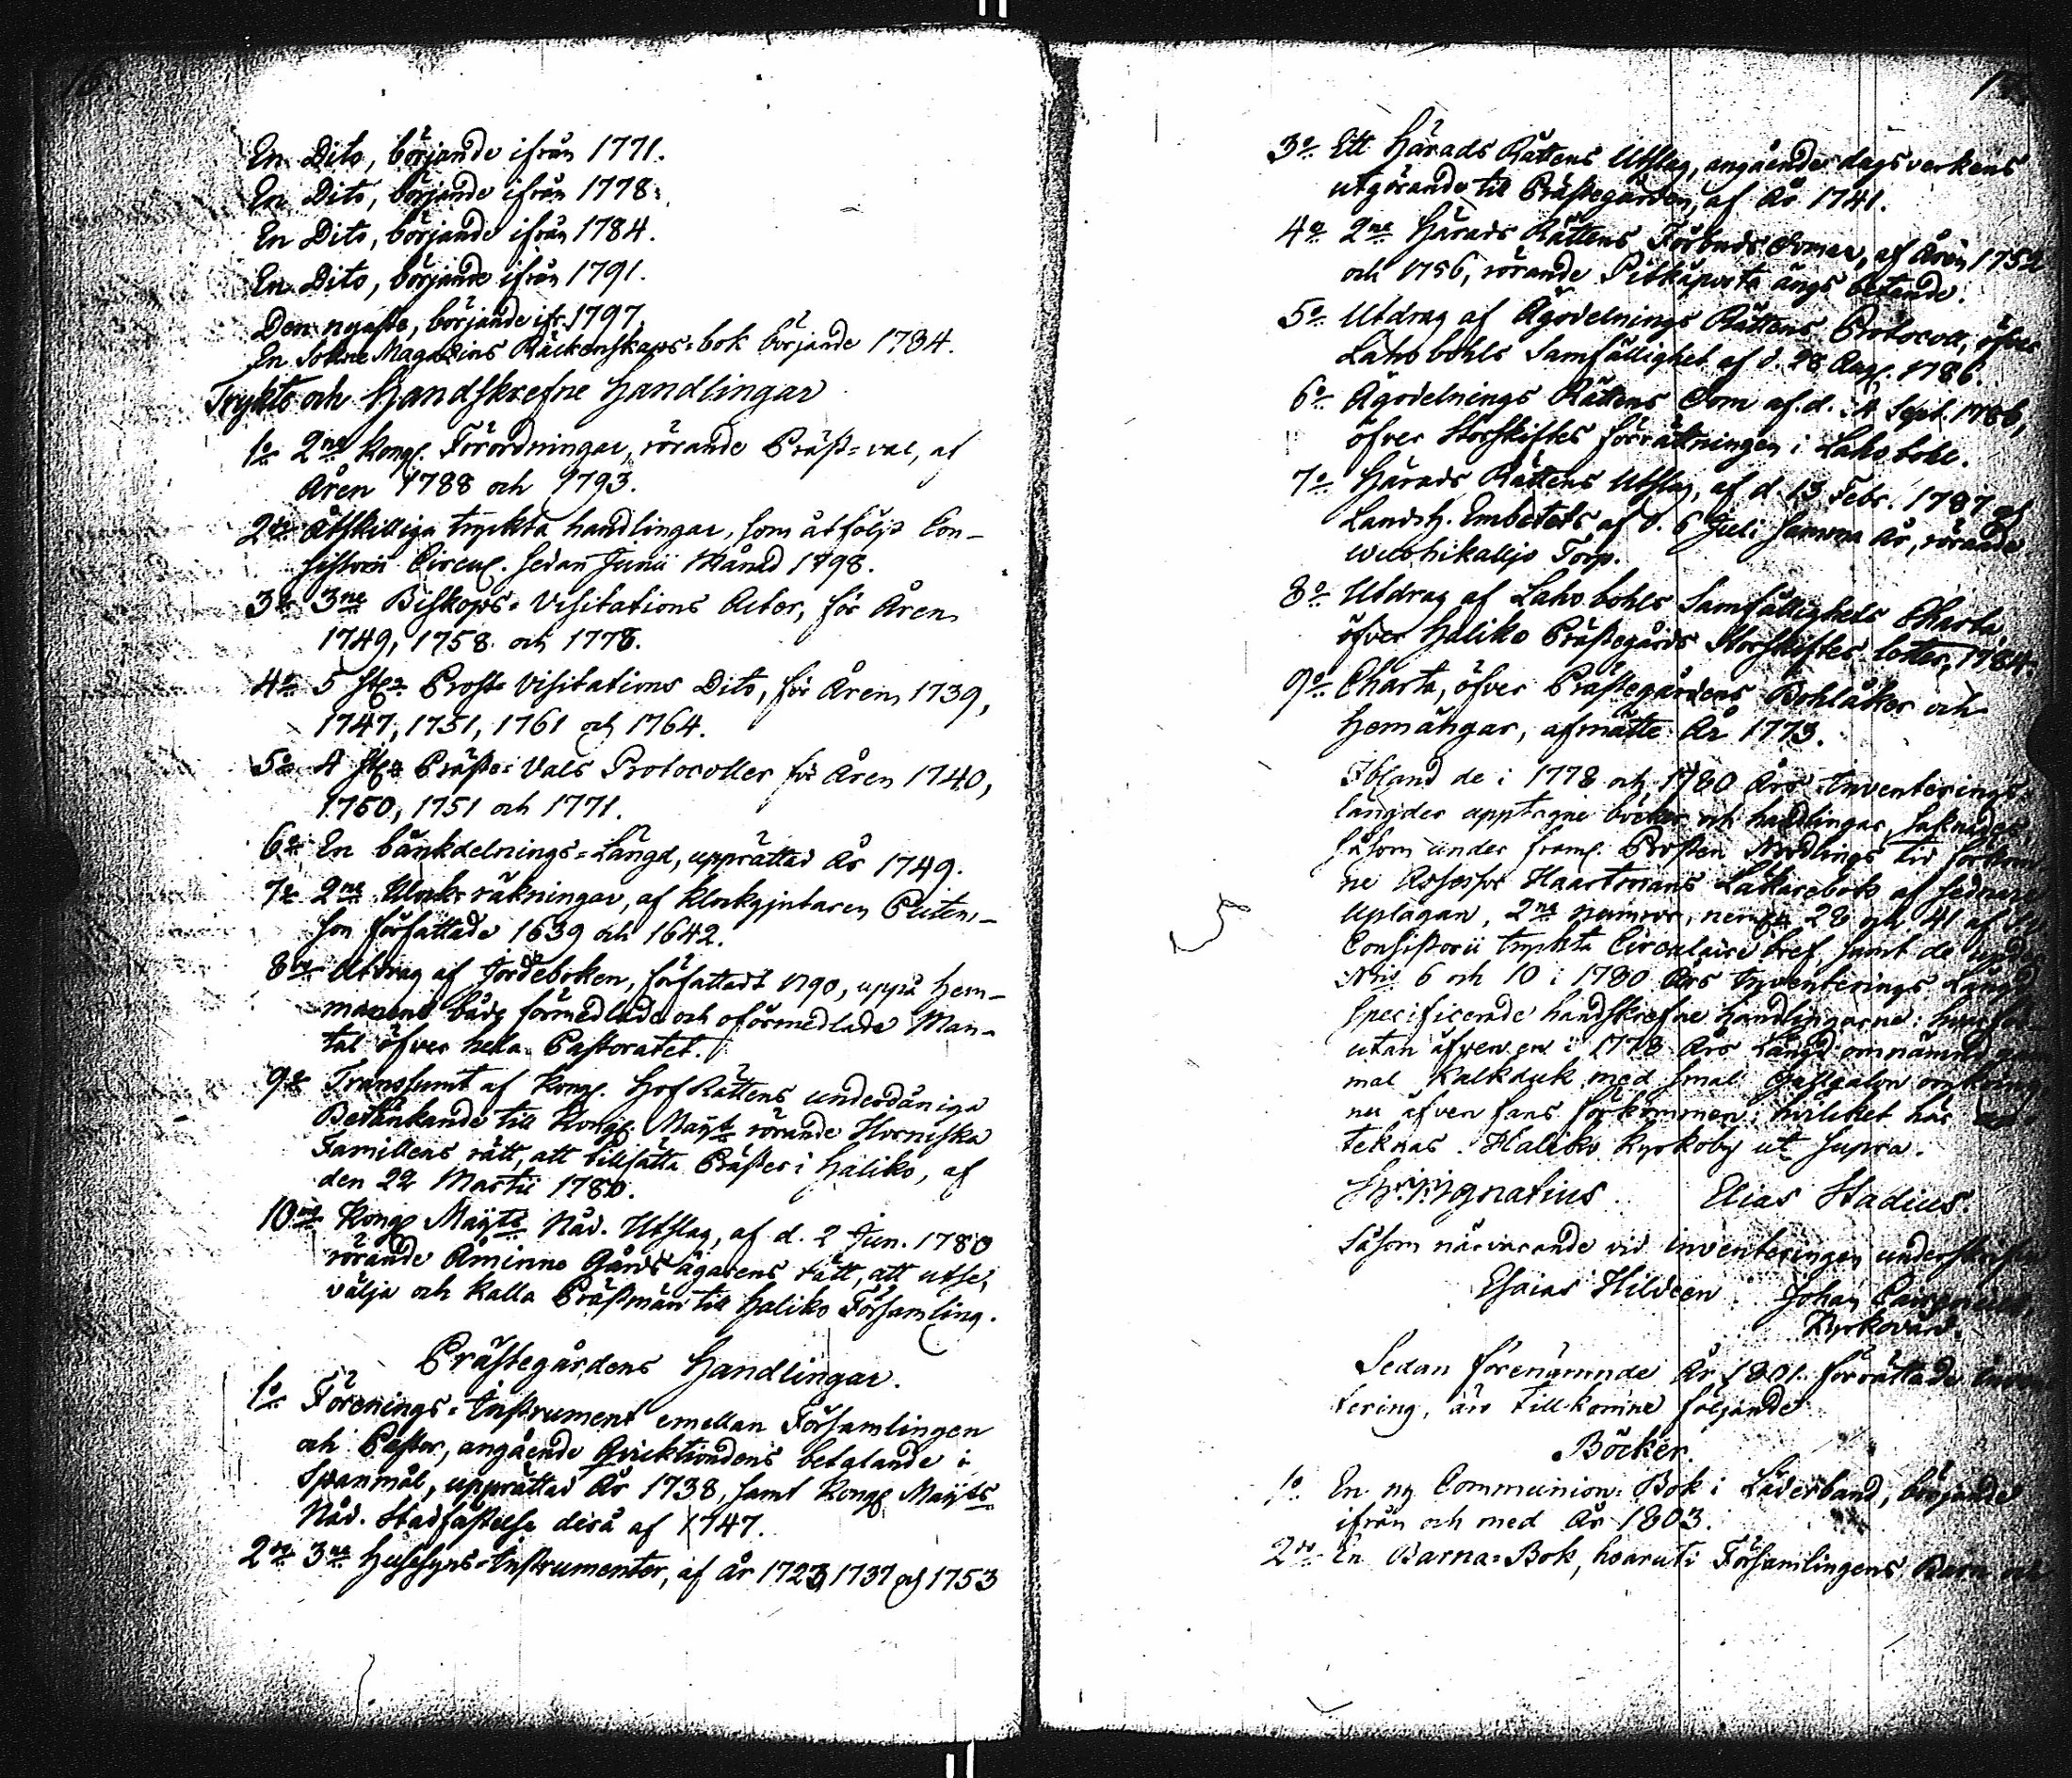 En Dito, börjande ifrån 1771.
En Dito, börjande ifrån 1778.
En Dito, börjande ifrån 1784.
En Dito, börjande ifrån 1791.
Den nyaste, börjande ifr. 1797.
En Sokne Magazins Räckenskaps-bok börjande 1784.
Tryckte och Handskrefne Handlingar
1o 2ne Kongl. Förordningar, rörande Präst-val, af
Åren 1788 och 1793.
2o Åtskilliga tryckta handlingar, som åtföljt Con-
sistorii Circul. sedan Junii Månad 1798.
3o 3ne Biskops-Visitations Acter, för Åren
1749, 1758 och 1778.
4o 5 st. Prosts Visitations Dito, för Åren 1739,
1747, 1751, 1761 och 1764.
5o 4 st. Präste-Vals Protocoller för Åren 1740,
1750, 1751 och 1771.
6o En bänkdelnings-Längd, upprättad År 1749.
7o 2ne Klock-räkningar, af klockgjutaren
son författade 1639 och 1642.
8o Utdrag af Jordeboken, författadt 1790, uppå hem-
manens både förmedlade och oförmedlade Man-
tal öfver hela Pastoratet.
9o Transsumt af Kongl. Hof Rättens underdåniga
Betänkande till Kongl. Maijt rörande Hornska
Familiens rätt, att tillsätta Präster i Haliko, af
den 22 Martii 1780.
10o Kongl Maijts Nåd. Utslag, af d. 2 Jun. 1780
rörande Åminne Gårds ägarens rätt, att utse,
välja och kalla Prästmän till Haliko Församling.
Prästegårdens Handlingar.
1o Förenings-Instrument emellan Församlingen
och Pastor, angående Qvicktiondens betalande i
Spanmål, upprättad År 1738, samt Kongl Maijts
Nåd. Stadfästelse derå af 1747.
2o 3ne Husesyns-Instrumenter, af år 1723, 1737 och 1753
3o Ett Härads Rättens Utslag, angående dagsverkens
utgörande till Prästegården, af År 1741.
4o 2ne Härads Rättens Förbuds Domar, af Åren 1752
och 1756, rörande ängs betande.
5o Utdrag af Ägodelnings Rättens Protocoll, öfver
Lahobohls Samfällighet af d. 28 Aug. 1786.
6o Ägodelnings Rättens Dom af d. 4 Sept. 1786,
öfver Storskiftes förrättningen i Lahobohl.
7o Härads Rättens Utslag, af d. 13 Febr. 1787 af
Landsh. Embetets af d. 6 Juli samma År, rörande
Torp.
8o Utdrag af Lahobohls Samfällighets Charta
öfver Haliko Prästegårds Storskiftes lotter, 1784.
9o Charta, öfver Prästegårdens Bohlåker och
Hemängar, afmätte År 1773.
Ibland de i 1778 och 1780 Års Inventerings-
längder upptagne böcker och handlingar, saknades
såsom under framl. Prosten tid förkom-
ne Assessor Haartmans Läkarebok af sednare
Uplagan, 2ne numror, 28 och 41 af
Consistorii tryckta Circulaire bref, samt de under
Nris 6 och 10 i 1780 Års Inventerings Längd
specificerade handskrefne Handlingarne:
utan äfven en i 1778 Års Längd omnämnd gam
mal Kalkduk med smal omkring
nu äfven fans förkommen; hvilket här
teknas. Haliko Kyrkoby ut supra.
Ignatius Elias Stadius.
Såsom närvarande vid inventeringen underskrifva
Esaias Hildeen Johan
Kyrkovärd.
Sedan förenämnde År 1801 förrättade Inven
tering, äro tillkomne följande
Böcker.
1o En ny Communion-Bok i Läderband, börjande
ifrån och med År 1803.
2o En Barna-Bok, hvaruti Församlingens Barn och